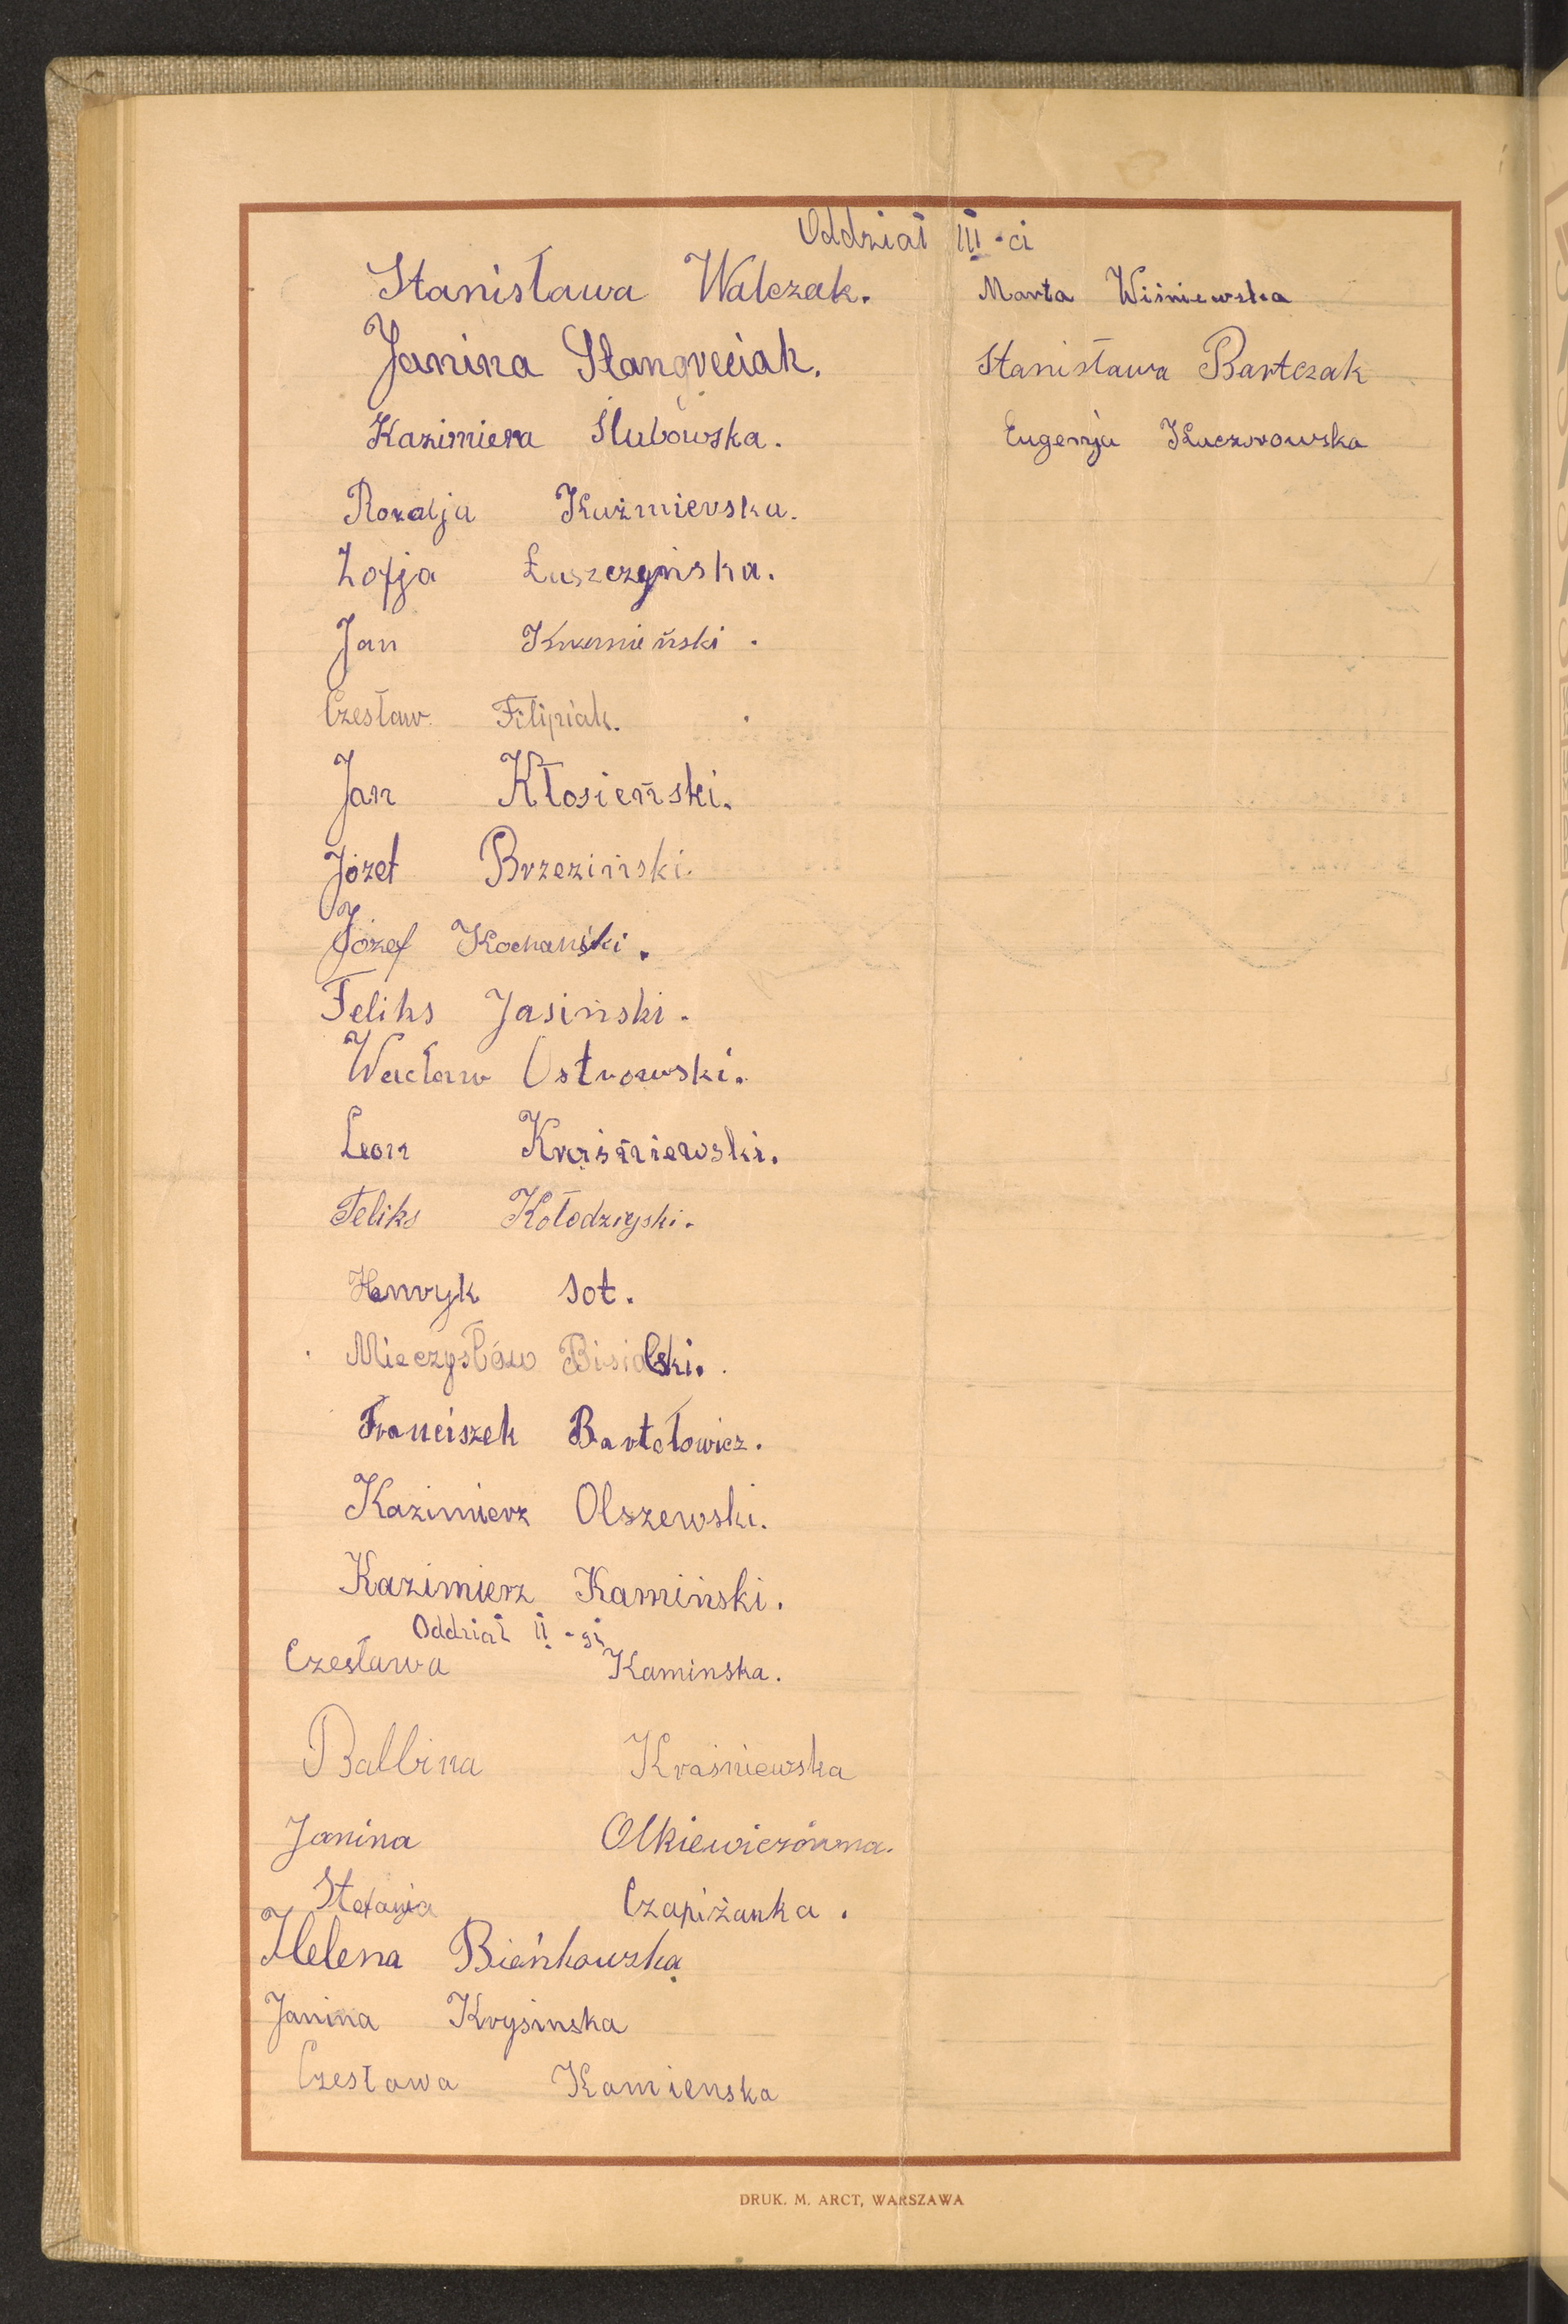 Oddział III-ci
Stanisława Walczak.
Janina
Kazimiera Ślubowska.
Rozalja Kuźmierska.
Zofja Łuszczyńska.
Jan
Czesław Filipiak.
Jan Kłosieński.
Józef Brzeziński.
Józef Kochański.
Feliks Jasiński.
Wacław Ostrowski.
Leon Kraśniewski.
Feliks Kołodziejski.
Henryk Sot.
Mieczysław Bisialski.
Franciszek Bartołowicz.
Kazimierz Olszewski.
Kazimierz Kamiński.
Oddział II-gi
Czesława Kaminska.
Balbina Kraśniewska
Janina Olkiewiczówna.
Stefanja Czapiżanka.
Helena Bieńkowska
Janina Krysinska
Czesława Kamienska
Marta Wiśniewska
Stanisława Bartczak
Eugenja Kaczorowska
DRUK. M. ARCT, WARSZAWA